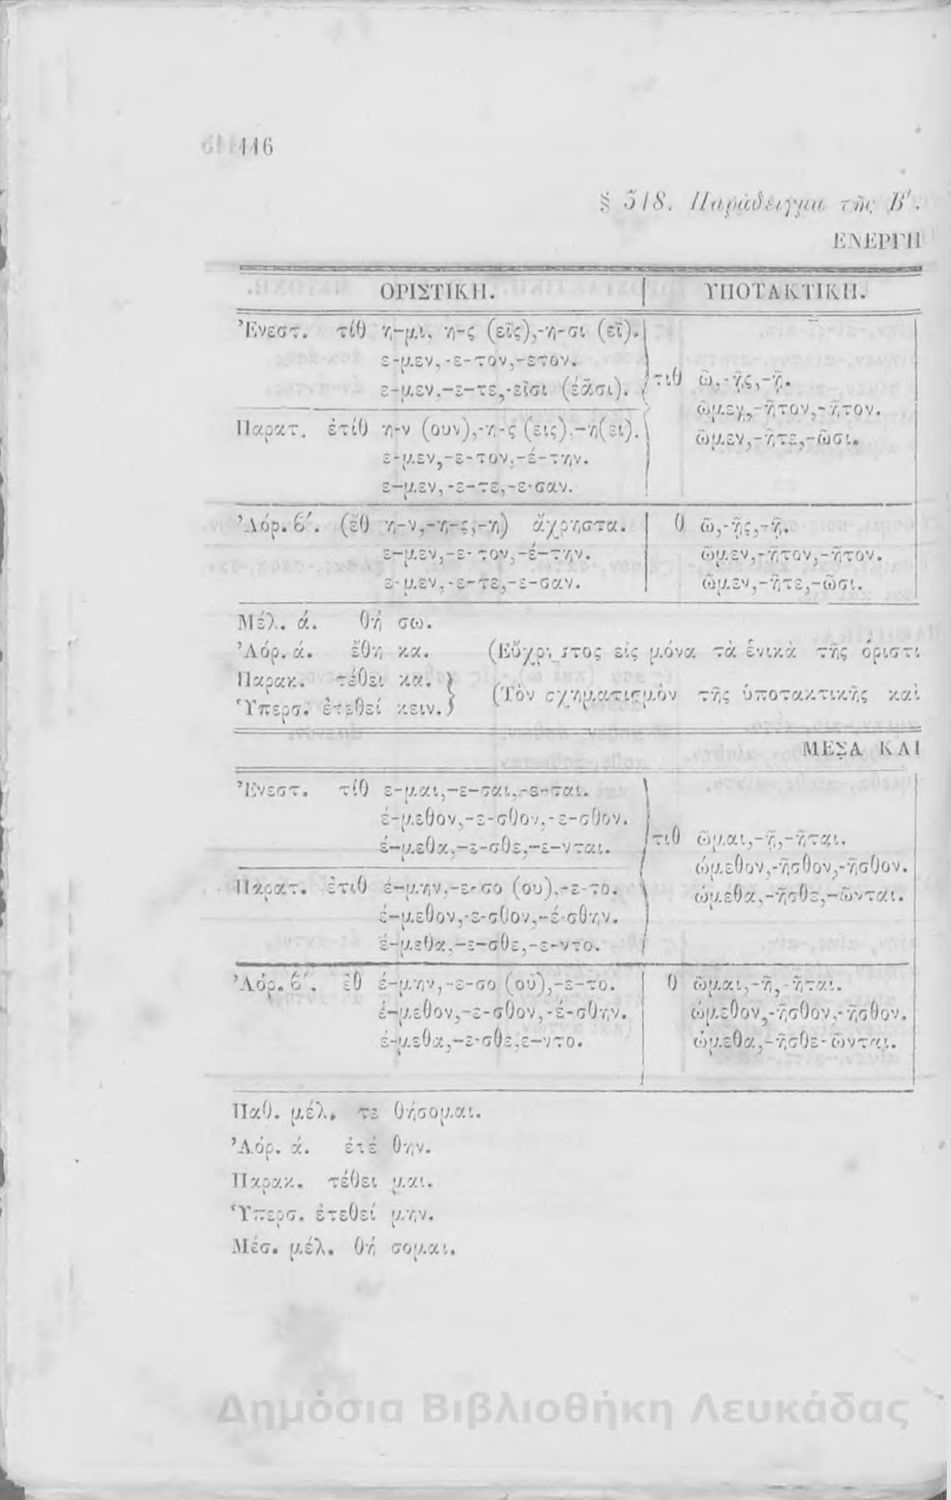 116
§ 318. Παράδειγμα τῆς Β'.
ΕΝΕΡΓΗ
ΟΡΙΣΤΙΚΗ. ΥΠΟΤΑΚΤΙΚΗ.
Ἐνεστ. τίθ η-μι, η-ς (εῖς),-η-σι (εῖ).
ε-μεν,-ε-τον,-ετον.
ε-μεν,-ε-τε,-εῖσι (έᾶσι).
τιθ ῶ,-ῇς,-ῇ.
ῶμεν,-ῆτον,-ῆτον.
ῶμεν,-ῆτε,-ῶσι.
Παρατ. ἐτίθ η-ν (ουν),-η-ς (εις),-η(ει).
ε-μεν,-ε-τον,-έ-την.
ε-μεν,-ε-τε,-ε-σαν.
Ἀόρ. β΄. (ἔθ η-ν,-η-ς,-η) ἄχρηστα. θ ῶ,-ῇς,-ῇ.
ε-μεν,-ε-τον,-έ-την. ῶμεν,-ῆτον,-ῆτον.
ε-μεν,-ε-τε,-ε-σαν. ῶμεν,-ῆτε,-ῶσι.
Μέλ. ά. θή σω.
Ἀόρ. ά. ἔθη κα. (Εὔχρηστος εἰς μόνα τὰ ἑνικὰ τῆς ὁριστι
Παρακ. τέθει κα.
Ὑπερσ. ἐτεθεί κειν. (Τὸν σχηματισμὸν τῆς ὑποτακτικῆς καὶ
ΜΕΣΑ ΚΑΙ
Ἐνεστ. τίθ ε-μαι,-ε-σαι,-ε-ται.
έ-μεθον,-ε-σθον,-ε-σθον.
έ-μεθα,-ε-σθε,-ε-νται.
τιθ ῶμαι,-ῇ,-ῆται.
ώμεθον,-ῆσθον,-ῆσθον.
ώμεθα,-ῆσθε,-ῶνται.
Παρατ. ἐτιθ έ-μην,-ε-σο (ου),-ε-το.
έ-μεθον,-ε-σθον,-έ-σθην.
έ-μεθα,-ε-σθε,-ε-ντο.
Ἀόρ. β΄. ἐθ έ-μην,-ε-σο (ου),-ε-το. θ ῶμαι,-ῇ,-ῆται.
έ-μεθον,-ε-σθον,-έ-σθην. ώμεθον,-ῆσθον,-ῆσθον.
έ-μεθα,-ε-σθε,ε-ντο. ώμεθα,-ῆσθε-ῶνται.
Παθ. μέλ. τε θήσομαι.
Ἀόρ. ά. ἐτέ θην.
Παρακ. τέθει μαι.
Ὑπερσ. ἐτεθεί μην.
Μέσ. μέλ. θή σομαι.
Δημόσια Βιβλιοθήκη Λευκάδας